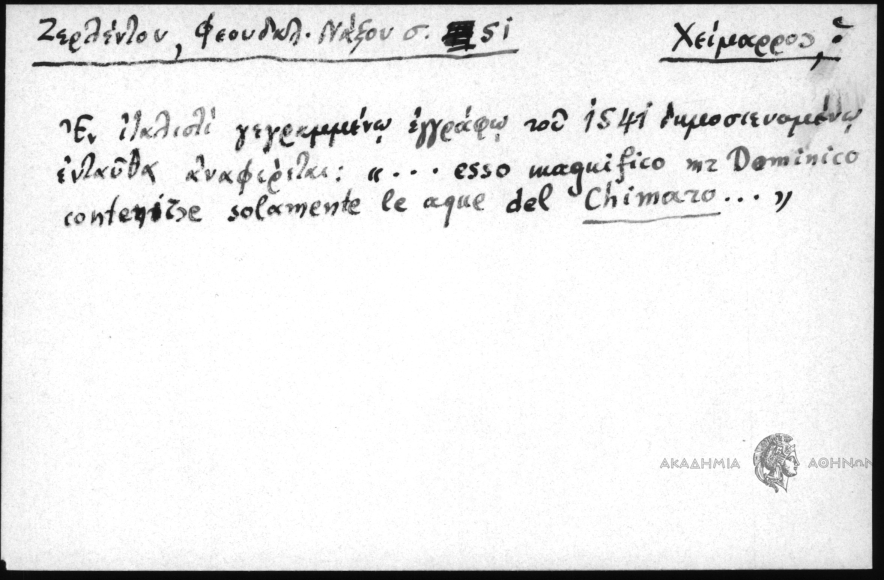 Ζερλέντου, Φεουδαλ. Νάξου σ. 51
Χείμαρρος, ὁ
Ἐν ἰταλιστὶ γεγραμμένῳ ἐγγράφῳ τοῦ 1541 δημοσιευομένῳ
ἐνταῦθα ἀναφέρεται: «... esso magnifico mr Dominico
solamente le aque del Chimaro...»
ΑΚΑΔΗΜΙΑ ΑΘΗΝΩΝ